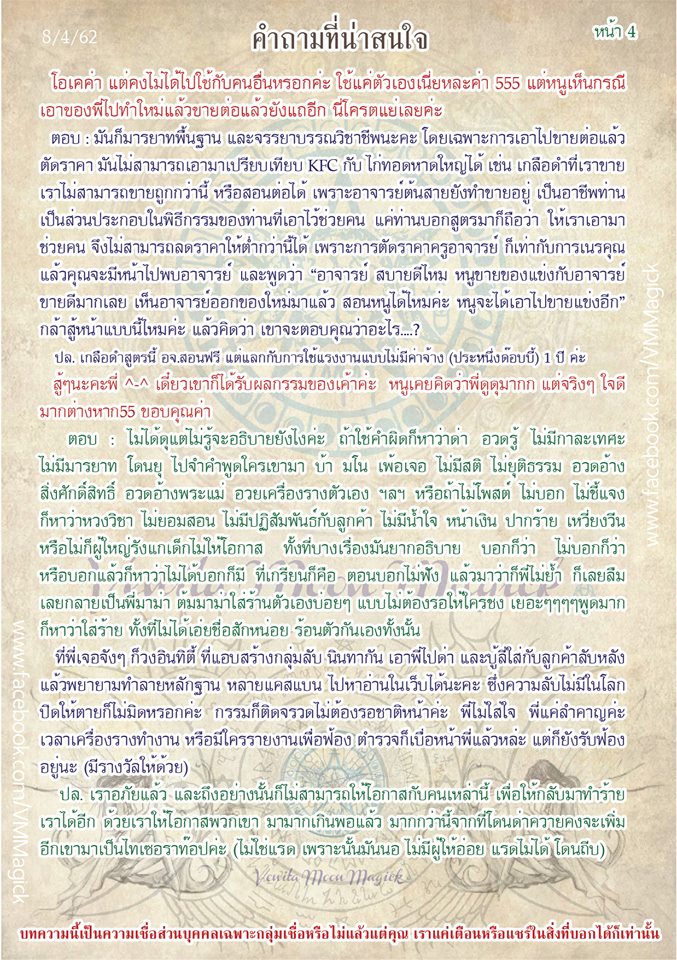 8/4/62
คำถามที่น่าสนใจ
หน้า 4
โอเคค่า แต่คงไม่ได้ไปใช้กับคนอื่นหรอกค่ะ ใช้แค่ตัวเองเนี่ยหละค่า 555 แต่หนูเห็นกรณี
เอาของพี่ไปทำใหม่แล้วขายต่อแล้วยังแถอีก นี่โครตแย่เลยค่ะ
ตอบ : มันก็มารยาทพื้นฐาน และจรรยาบรรณวิชาชีพนะคะ โดยเฉพาะการเอาไปขายต่อแล้ว
ตัดราคา มันไม่สามารถเอามาเปรียบเทียบ KFC กับ ไก่ทอดหาดใหญ่ได้ เช่น เกลือดำที่เราขาย
เราไม่สามารถขายถูกกว่านี้ หรือสอนต่อได้ เพราะอาจารย์ต้นสายยังทำขายอยู่ เป็นอาชีพท่าน
เป็นส่วนประกอบในพิธีกรรมของท่านที่เอาไว้ช่วยคน แค่ท่านบอกสูตรมาก็ถือว่า ให้เราเอามา
ช่วยคน จึงไม่สามารถลดราคาให้ต่ำกว่านี้ได้ เพราะการตัดราคาครูอาจารย์ ก็เท่ากับการเนรคุณ
แล้วคุณจะมีหน้าไปพบอาจารย์ และพูดว่า “อาจารย์ สบายดีไหม หนูขายของแข่งกับอาจารย์
ขายดีมากเลย เห็นอาจารย์ออกของใหม่มาแล้ว สอนหนูได้ไหมค่ะ หนูจะได้เอาไปขายแข่งอีก”
กล้าสู้หน้าแบบนี้ไหมค่ะ แล้วคิดว่า เขาจะตอบคุณว่าอะไร....?
ปล. เกลือดำสูตรนี้ อจ.สอนฟรี แต่แลกกับการใช้แรงงานแบบไม่มีค่าจ้าง (ประหนึ่งด๊อบบี้) 1 ปี ค่ะ
สู้ๆนะคะพี่ ^-^ เดี๋ยวเขาก็ได้รับผลกรรมของเค้าค่ะ หนูเคยคิดว่าพี่ดุดุมากก แต่จริงๆ ใจดี
มากต่างหาก55 ขอบคุณค่า
ตอบ : ไม่ได้ดุแต่ไม่รู้จะอธิบายยังไงค่ะ ถ้าใช้คำผิดก็หาว่าด่า อวดรู้ ไม่มีกาละเทศะ
ไม่มีมารยาท โดนยุ ไปจำคำพูดใครเขามา บ้า มโน เพ้อเจอ ไม่มีสติ ไม่ยุติธรรม อวดอ้าง
สิ่งศักดิ์สิทธิ์ อวดอ้างพระแม่ อวยเครื่องรางตัวเอง ฯลฯ หรือถ้าไม่โพสต์ ไม่บอก ไม่ชี้แจง
ก็หาว่าหวงวิชา ไม่ยอมสอน ไม่มีปฏิสัมพันธ์กับลูกค้า ไม่มีน้ำใจ หน้าเงิน ปากร้าย เหวี่ยงวีน
หรือไม่ก็ผู้ใหญ่รังแกเด็กไม่ให้โอกาส ทั้งที่บางเรื่องมันยากอธิบาย บอกก็ว่า ไม่บอกก็ว่า
หรือบอกแล้วก็หาว่าไม่ได้บอกก็มี ที่เกรียนก็คือ ตอนบอกไม่ฟัง แล้วมาว่าก็พี่ไม่ย้ำ ก็เลยลืม
เลยกลายเป็นพี่มาม่า ต้มมาม่าใส่ร้านตัวเองบ่อยๆ แบบไม่ต้องรอให้ใครชง เยอะๆๆๆๆพูดมาก
ก็หาว่าใส่ร้าย ทั้งที่ไม่ได้เอ่ยชื่อสักหน่อย ร้อนตัวกันเองทั้งนั้น
ที่พี่เจอจังๆ ก็วงอินทิตี้ ที่แอบสร้างกลุ่มลับ นินทากัน เอาพี่ไปด่า และบู้ลี่ใส่กับลูกค้าลับหลัง
แล้วพยายามทำลายหลักฐาน หลายแคสแบน ไปหาอ่านในเว็บได้นะคะ ซึ่งความลับไม่มีในโลก
ปิดให้ตายก็ไม่มิดหรอกค่ะ กรรมก็ติดจรวดไม่ต้องรอชาติหน้าค่ะ พี่ไม่ใส่ใจ พี่แค่ลำคาญค่ะ
เวลาเครื่องรางทำงาน หรือมีใครรายงานเพื่อฟ้อง ตำรวจก็เบื่อหน้าพี่แล้วหล่ะ แต่ก็ยังรับฟ้อง
อยู่นะ (มีรางวัลให้ด้วย)
ปล. เราอภัยแล้ว และถึงอย่างนั้นก็ไม่สามารถให้โอกาสกับคนเหล่านี้ เพื่อให้กลับมาทำร้าย
เราได้อีก ด้วยเราให้โอกาสพวกเขา มามากเกินพอแล้ว มากกว่านี้จากที่โดนดาควายคงจะเพิ่ม
อีกเขามาเป็นไทเซอราท๊อปค่ะ (ไม่ใช่แรด เพราะนั้นมันนอ ไม่มีผู้ให้อ่อย แรดไม่ได้ โดนถีบ)
Vewita Moon Magick
www.facebook.com/VMMagick
www.facebook.com/VMMagick
บทความนี้เป็นความเชื่อส่วนบุคคลเฉพาะกลุ่มเชื่อหรือไม่แล้วแต่คุณ เราแค่เตือนหรือแชร์ในสิ่งที่บอกได้ก็เท่านั้น